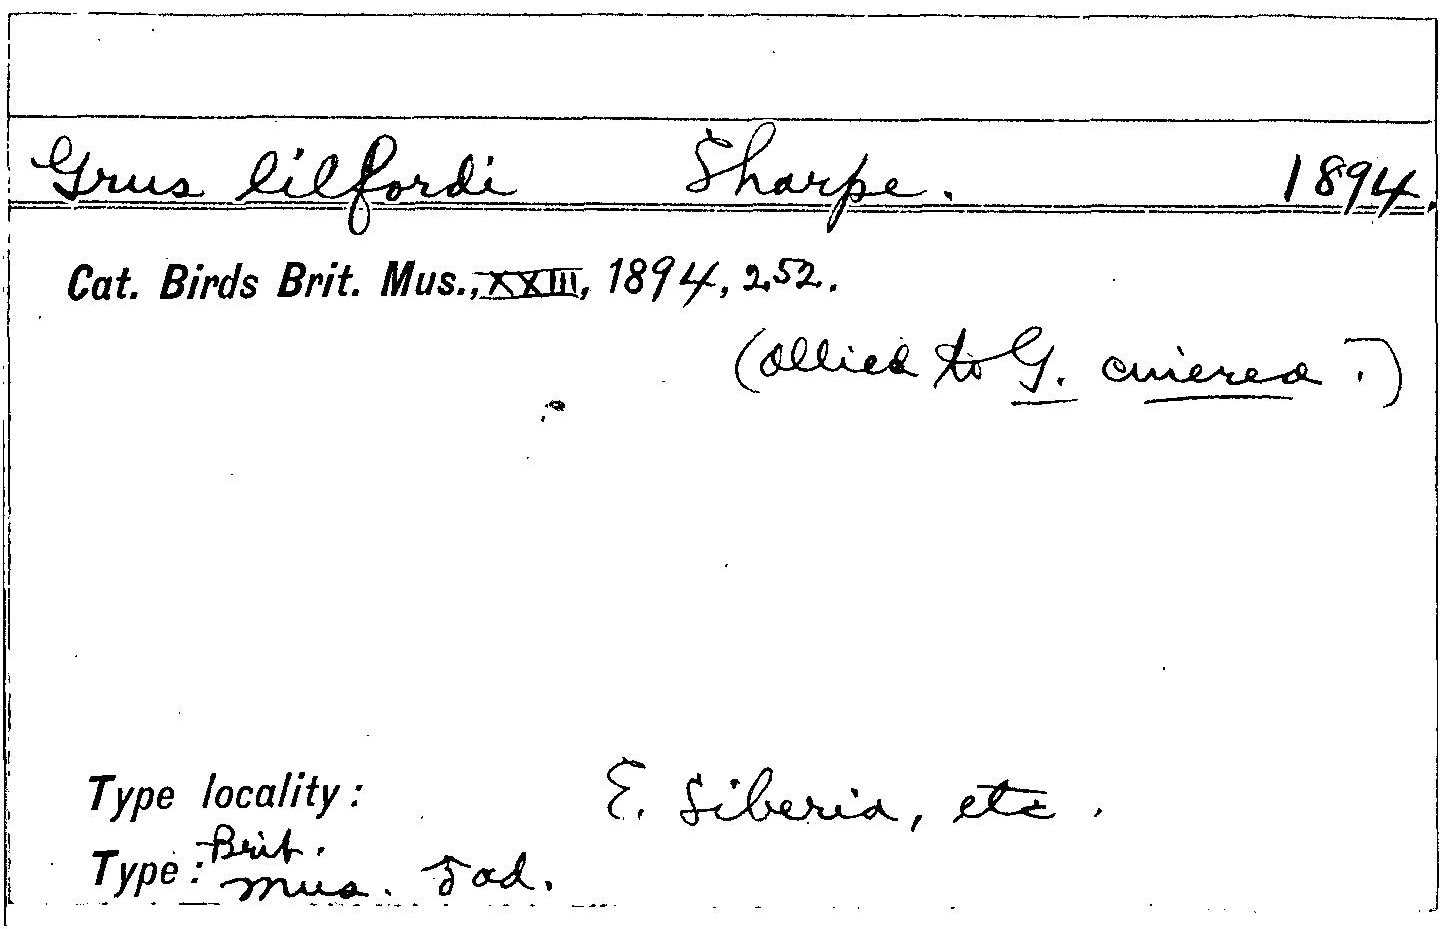 Grus lilfordi Sharpe. 1894.
Cat. Birds Brit. Mus., XXIII, 1894, 252.
(allied to G. cinerea.)
Type locality: E. Siberia, etc.
Type: Brit.
Mus. ad.